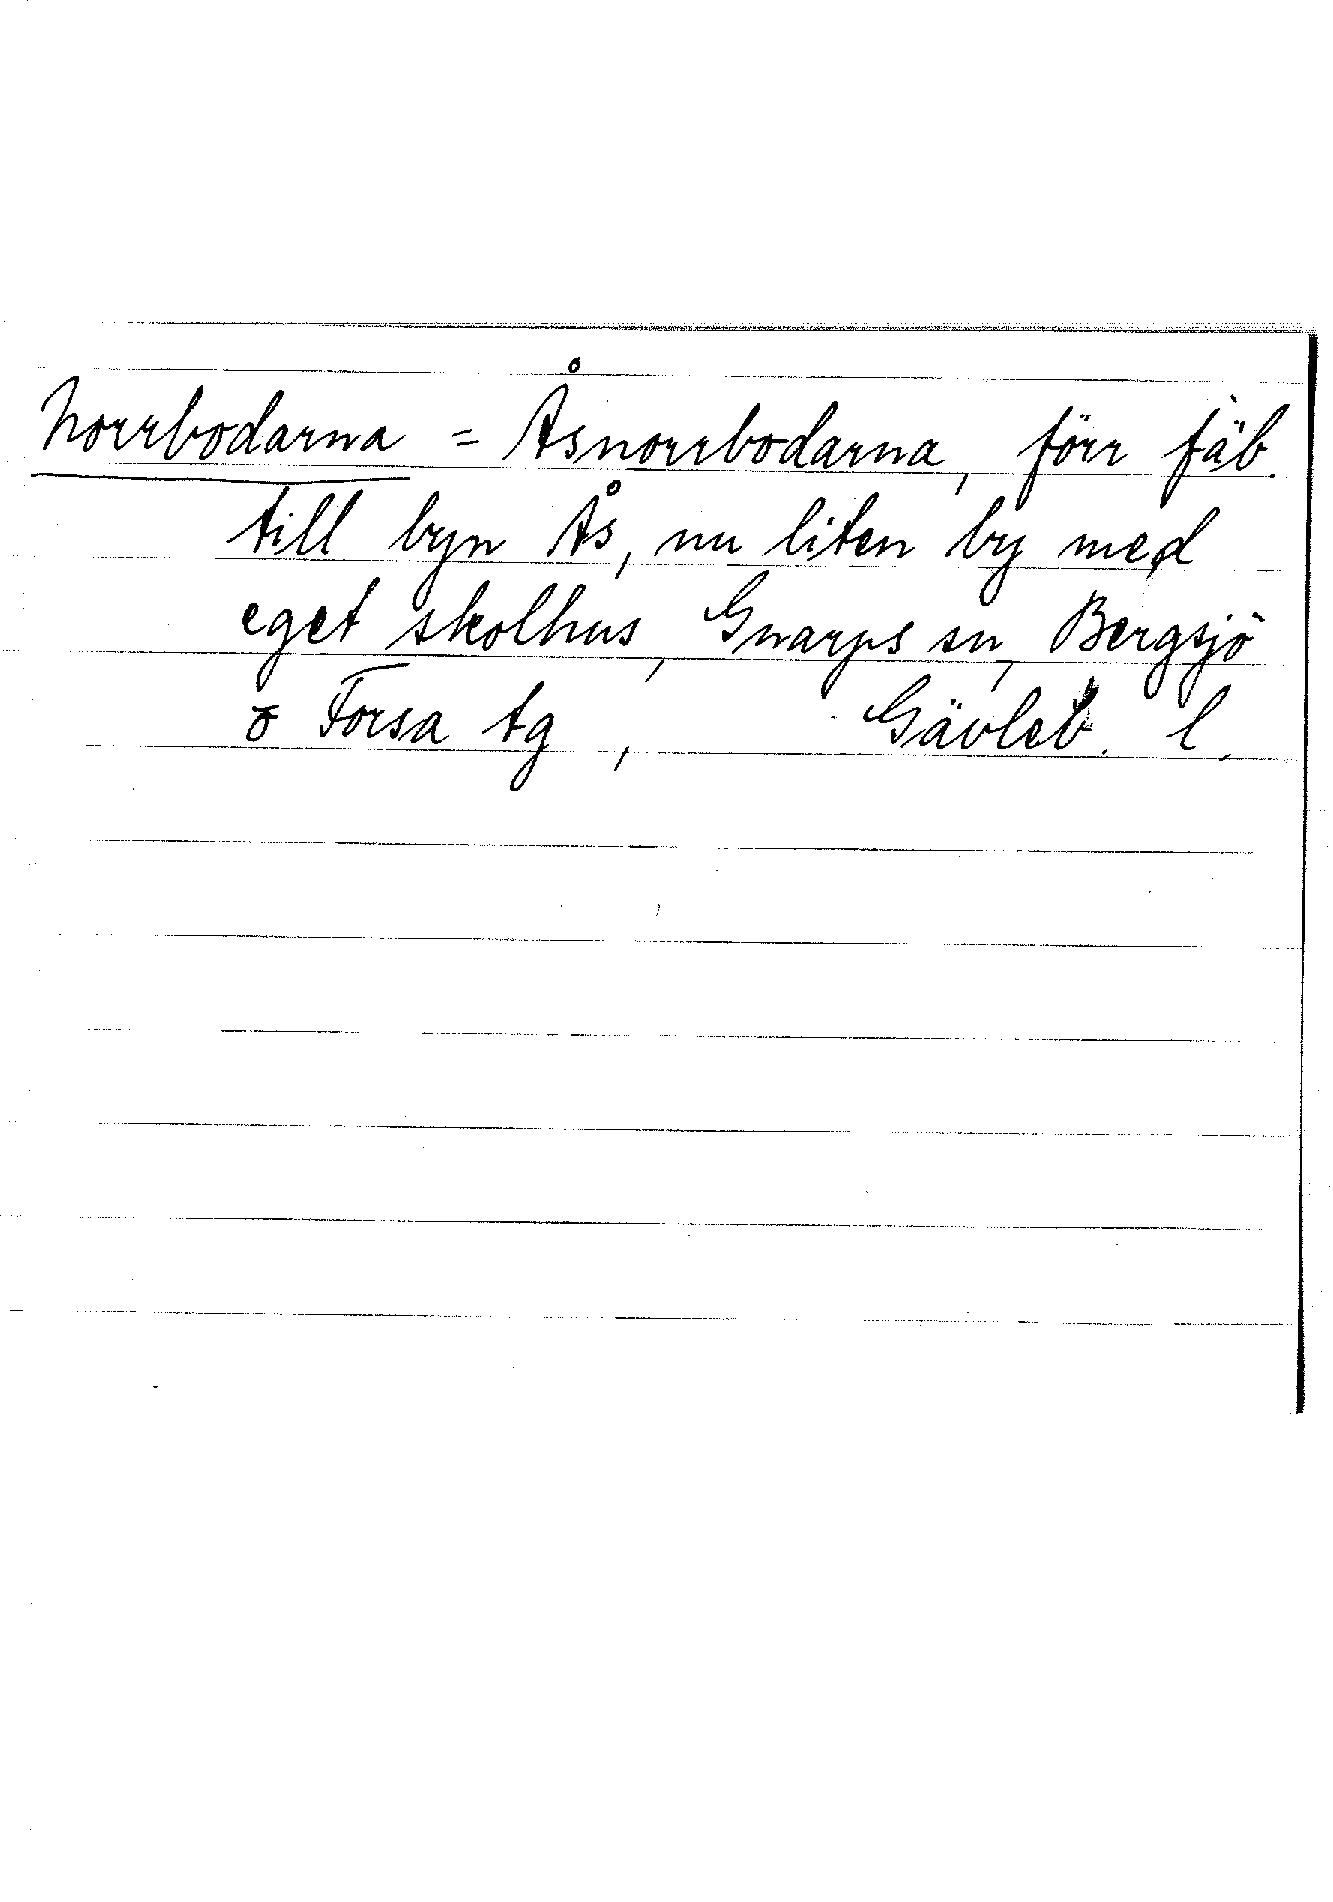 Norrbodarna = Åsnorrbodarna, förr fäb.
till byn Ås, nu liten by med
eget skolhus, Gnarps sn, Bergsjö
o Forsa tg, Gävleb. l.